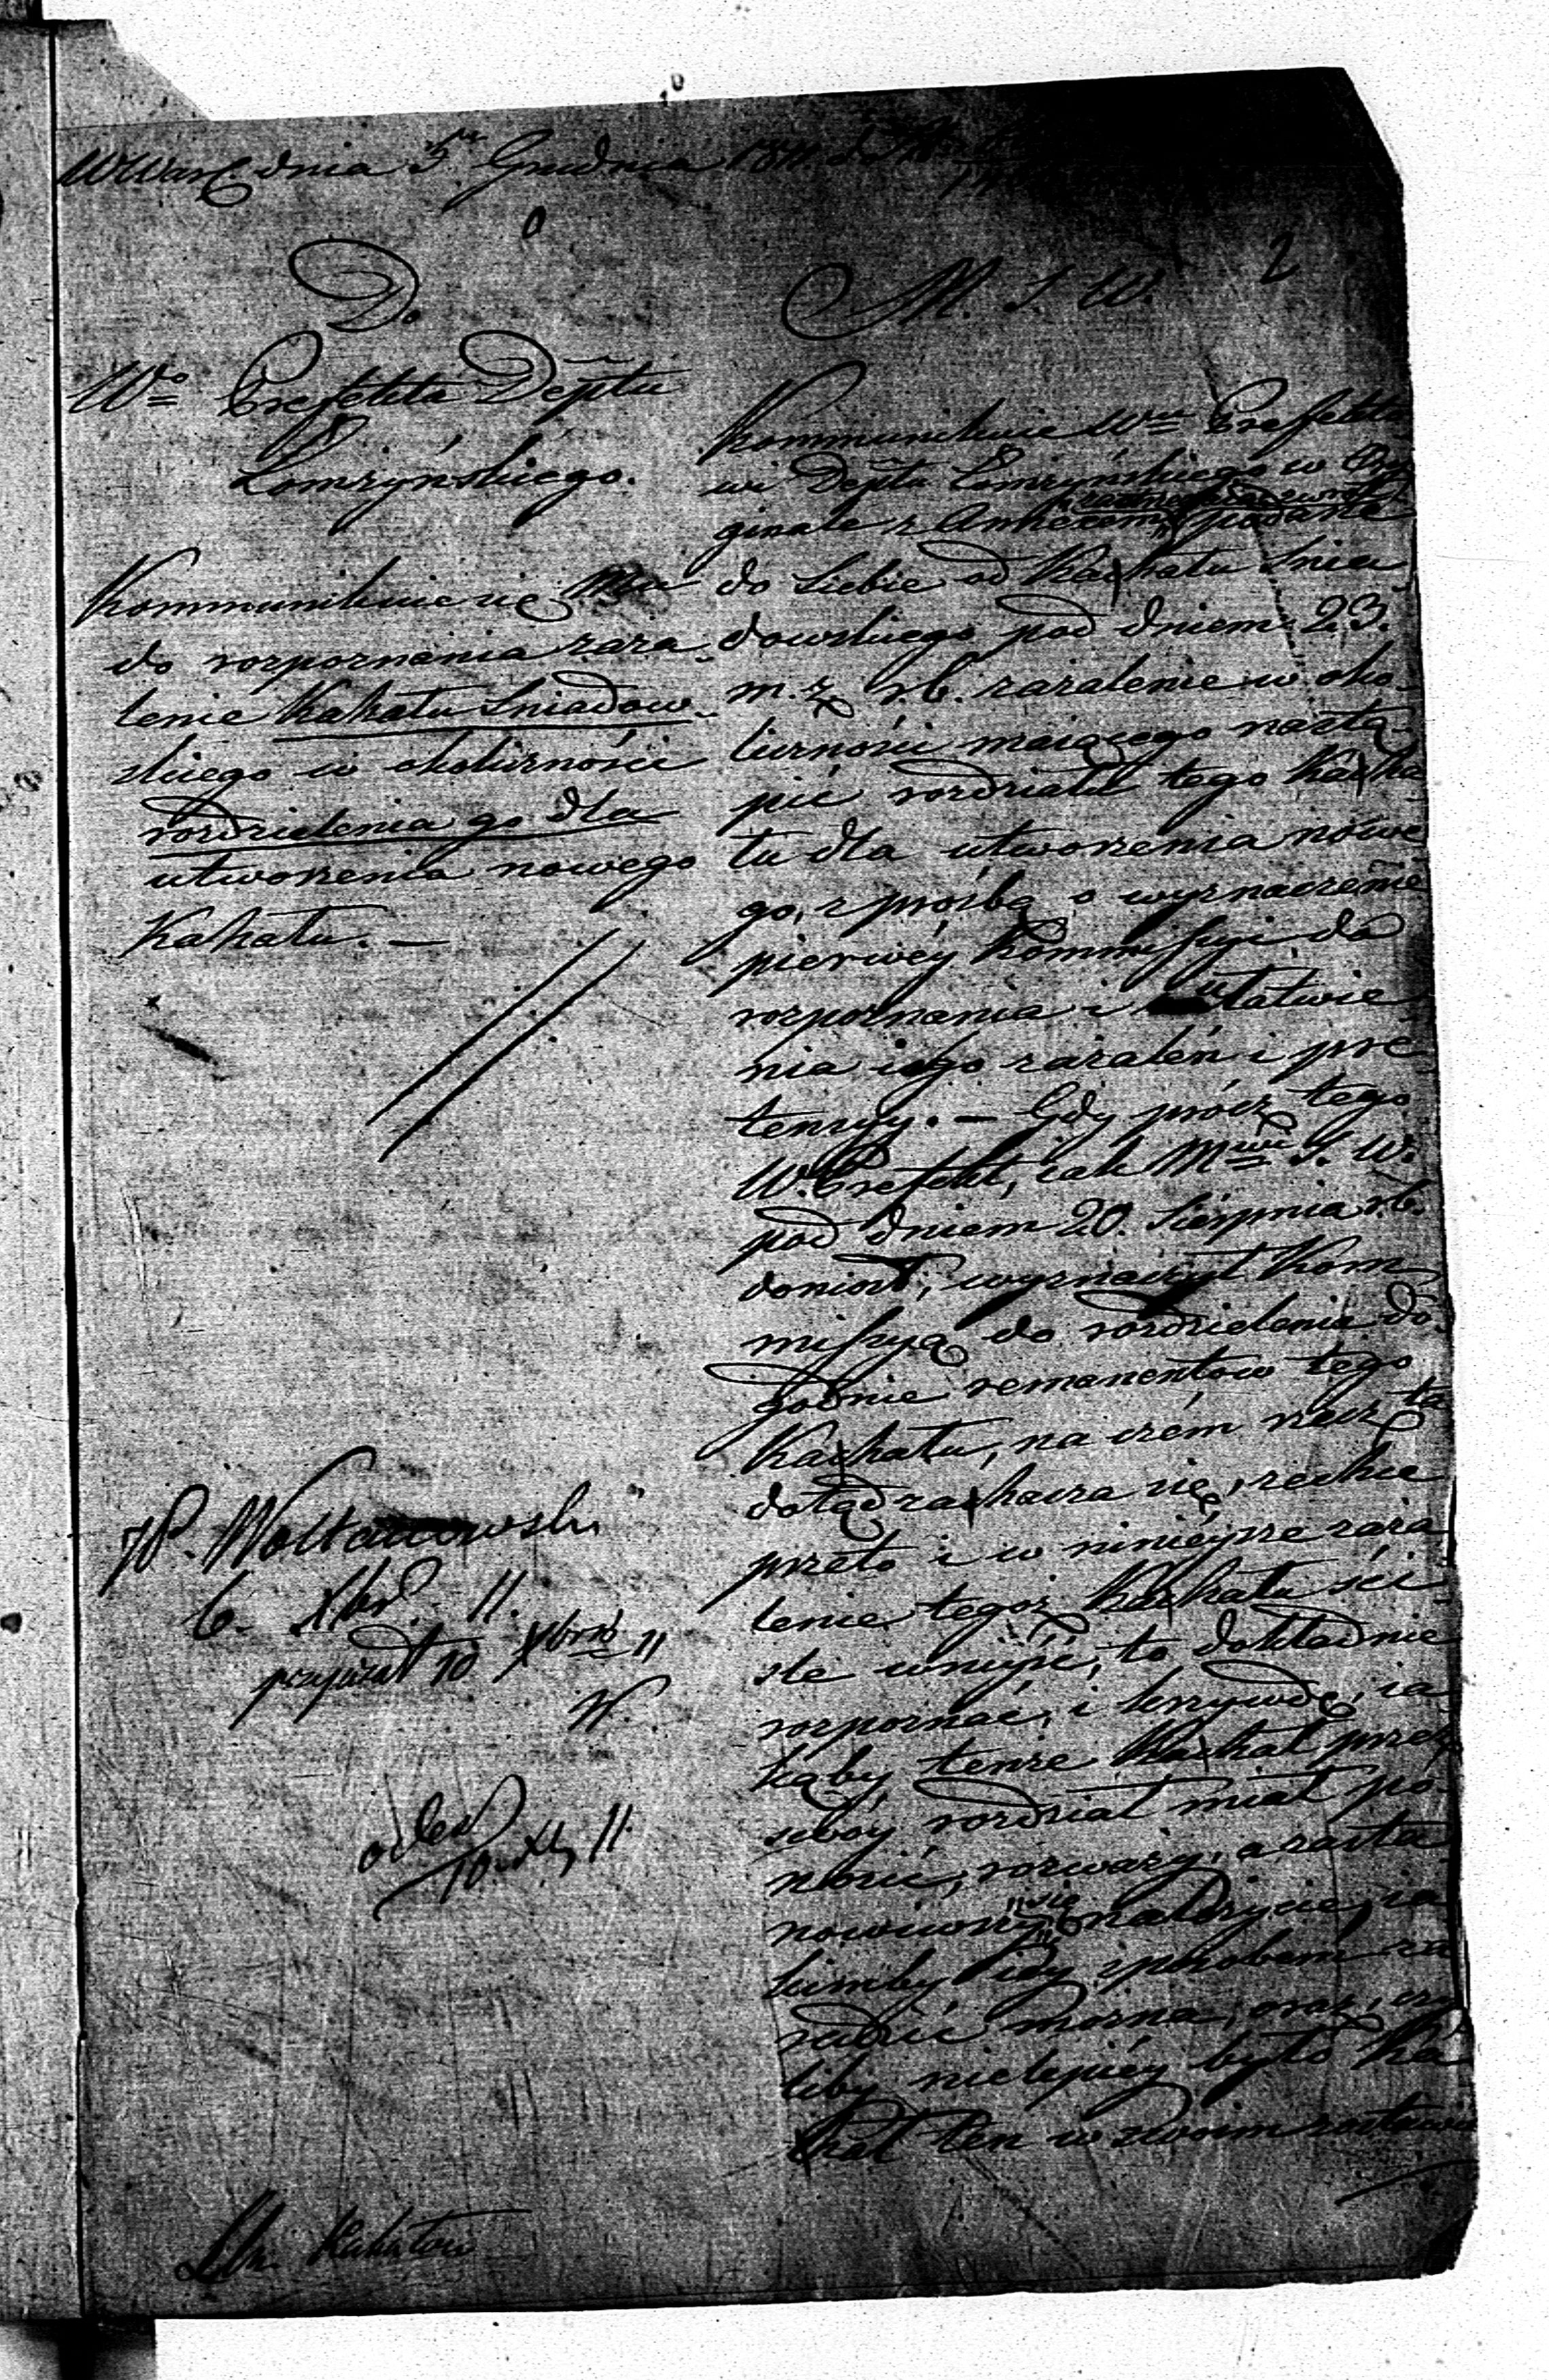 W Warsz. dnia 5go Grudnia 1811
2
Do
Wo Prefekta Deptu
Łomżyńskiego.
Kommunikuie się Mu
do rozpoznania zaża-
lenie Kahału Śniadow-
skiego w okoliczności
rozdzielenia go dla
utworzenia nowego
Kahału. —
W. Woltanowski
6. Xbr. 11.
przepisał 10 Xbris 11
W.
odesł
10. Xb 11.
Kahałów
M. S. W.
Kommunikuie Wmu Prefekto-
wi Deptu Łomżyńskiego w Ory-
ginale z Anhexem podane
do siebie od Kahału Śnia-
dowskiego pod dniem 23.
m. z. r.b. zażalenie w oko-
liczności maiącego nastą-
pić rozdziału tego Kaha-
łu dla utworzenia nowe-
go, z prośbą o wyznaczenie
pierwéy Kommissyi do
rozpoznania i ułatwie-
nia iego zażaleń i pre-
tensyy. — Gdy prócz tego
W. Prefekt, iak Mwi S. W.
pod dniem 20. Sierpnia r.b.
doniosł, wyznaczył Kom-
missyą do rozdzielenia do-
godnie remanentow tego
Kahału, na czém rzecz ta
dotąd zahacza się, zechce
przeto i w ninieysze zaża-
lenie tegoż Kahału ści-
śle wniyść, to dokładnie
rozpoznać, i krzywdę, ia-
kąby tenże Kahał przez
swóy rozdział miał po-
nosić, rozważy, a zasta-
nowiwszy się należycie, ia-
kimby iéy sposobem za-
radzić można, oraz, czy-
liby nielepiéy było Ka-
hał ten w swoim zostawić